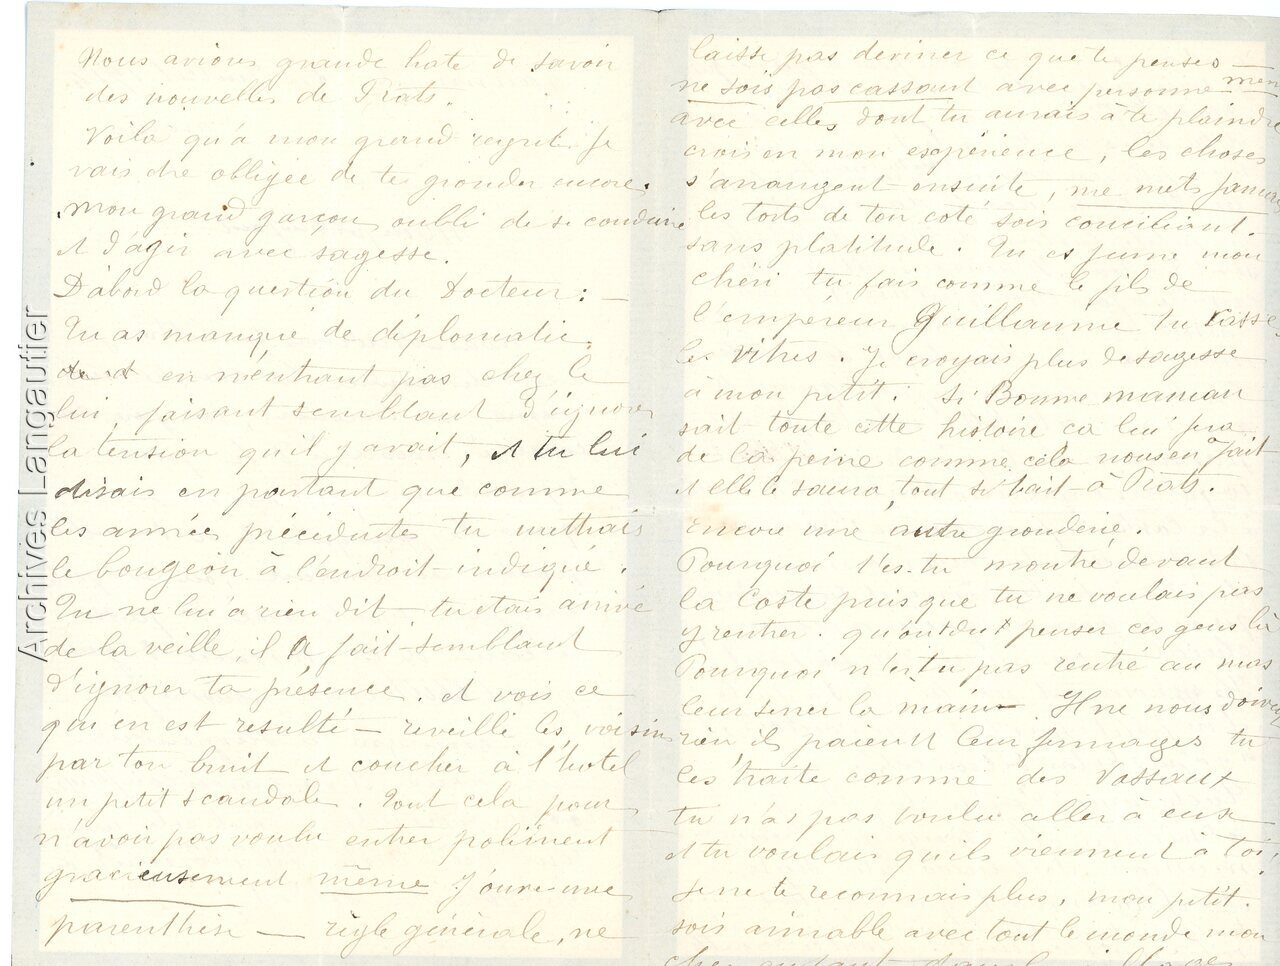 Nous avions grande hate de savoir
des nouvelles de Prats.
Voila qu'a mon grand regret je
vais etre obligée de te gronder encore.
Mon grand garçon oubli de se conduire
et d'agir avec sagesse.
D'abord la question du Docteur : —
Tu as manqué de diplomatie.
en n'entrant pas chez le
lui faisant semblant d'ignorer
la tension qu'il y avait, et tu lui
disais en partant que comme
les années précédentes tu mettrais
le bougeoir à l'endroit indiqué.
Tu ne lui a rien dit — tu etais arrivé
de la veille, il a fait semblant
d'ignorer ta présence. et vois ce
qui en est resulté — reveillé les voisins
par ton bruit et coucher à l'hotel
un petit scandale. Tout cela pour
n'avoir pas voulu entrer poliment
gracieusement même J'ouvre une
parenthèse — règle générale, ne
laisse pas deviner ce que tu penses —
ne sois pas cassant avec personne
avec celles dont tu aurais à te plaindre
crois en mon expérience, les choses
s'arrangent ensuite, ne mets jamais
les torts de ton coté sois conciliant.
sans platitude. Tu es jeune mon
chéri tu fais comme le fils de
l'empéreur Guillaume tu casse
les vitres. Je croyais plus de sagesse
à mon petit. Si Bonne maman
sait toute cette histoire ca lui fera
de la peine comme cela nous en a fait
et elle le saura, tout se sait à Prats.
Encore une autre gronderie.
Pourquoi t'es-tu montré devant
la Coste puis que tu ne voulais pas
y rentrer. qu'ont dut penser ces gens là
Pourquoi n'es tu pas rentré au mas
leur serrer la main. Il ne nous doivent
rien ils paient leur fermages tu
les traite comme des Vassaux
tu n'as pas voulu aller à eux
et tu voulais qu'ils viennent à toi,
je ne te reconnais plus, mon petit.
sois aimable avec tout le monde mon
Archives Langautier